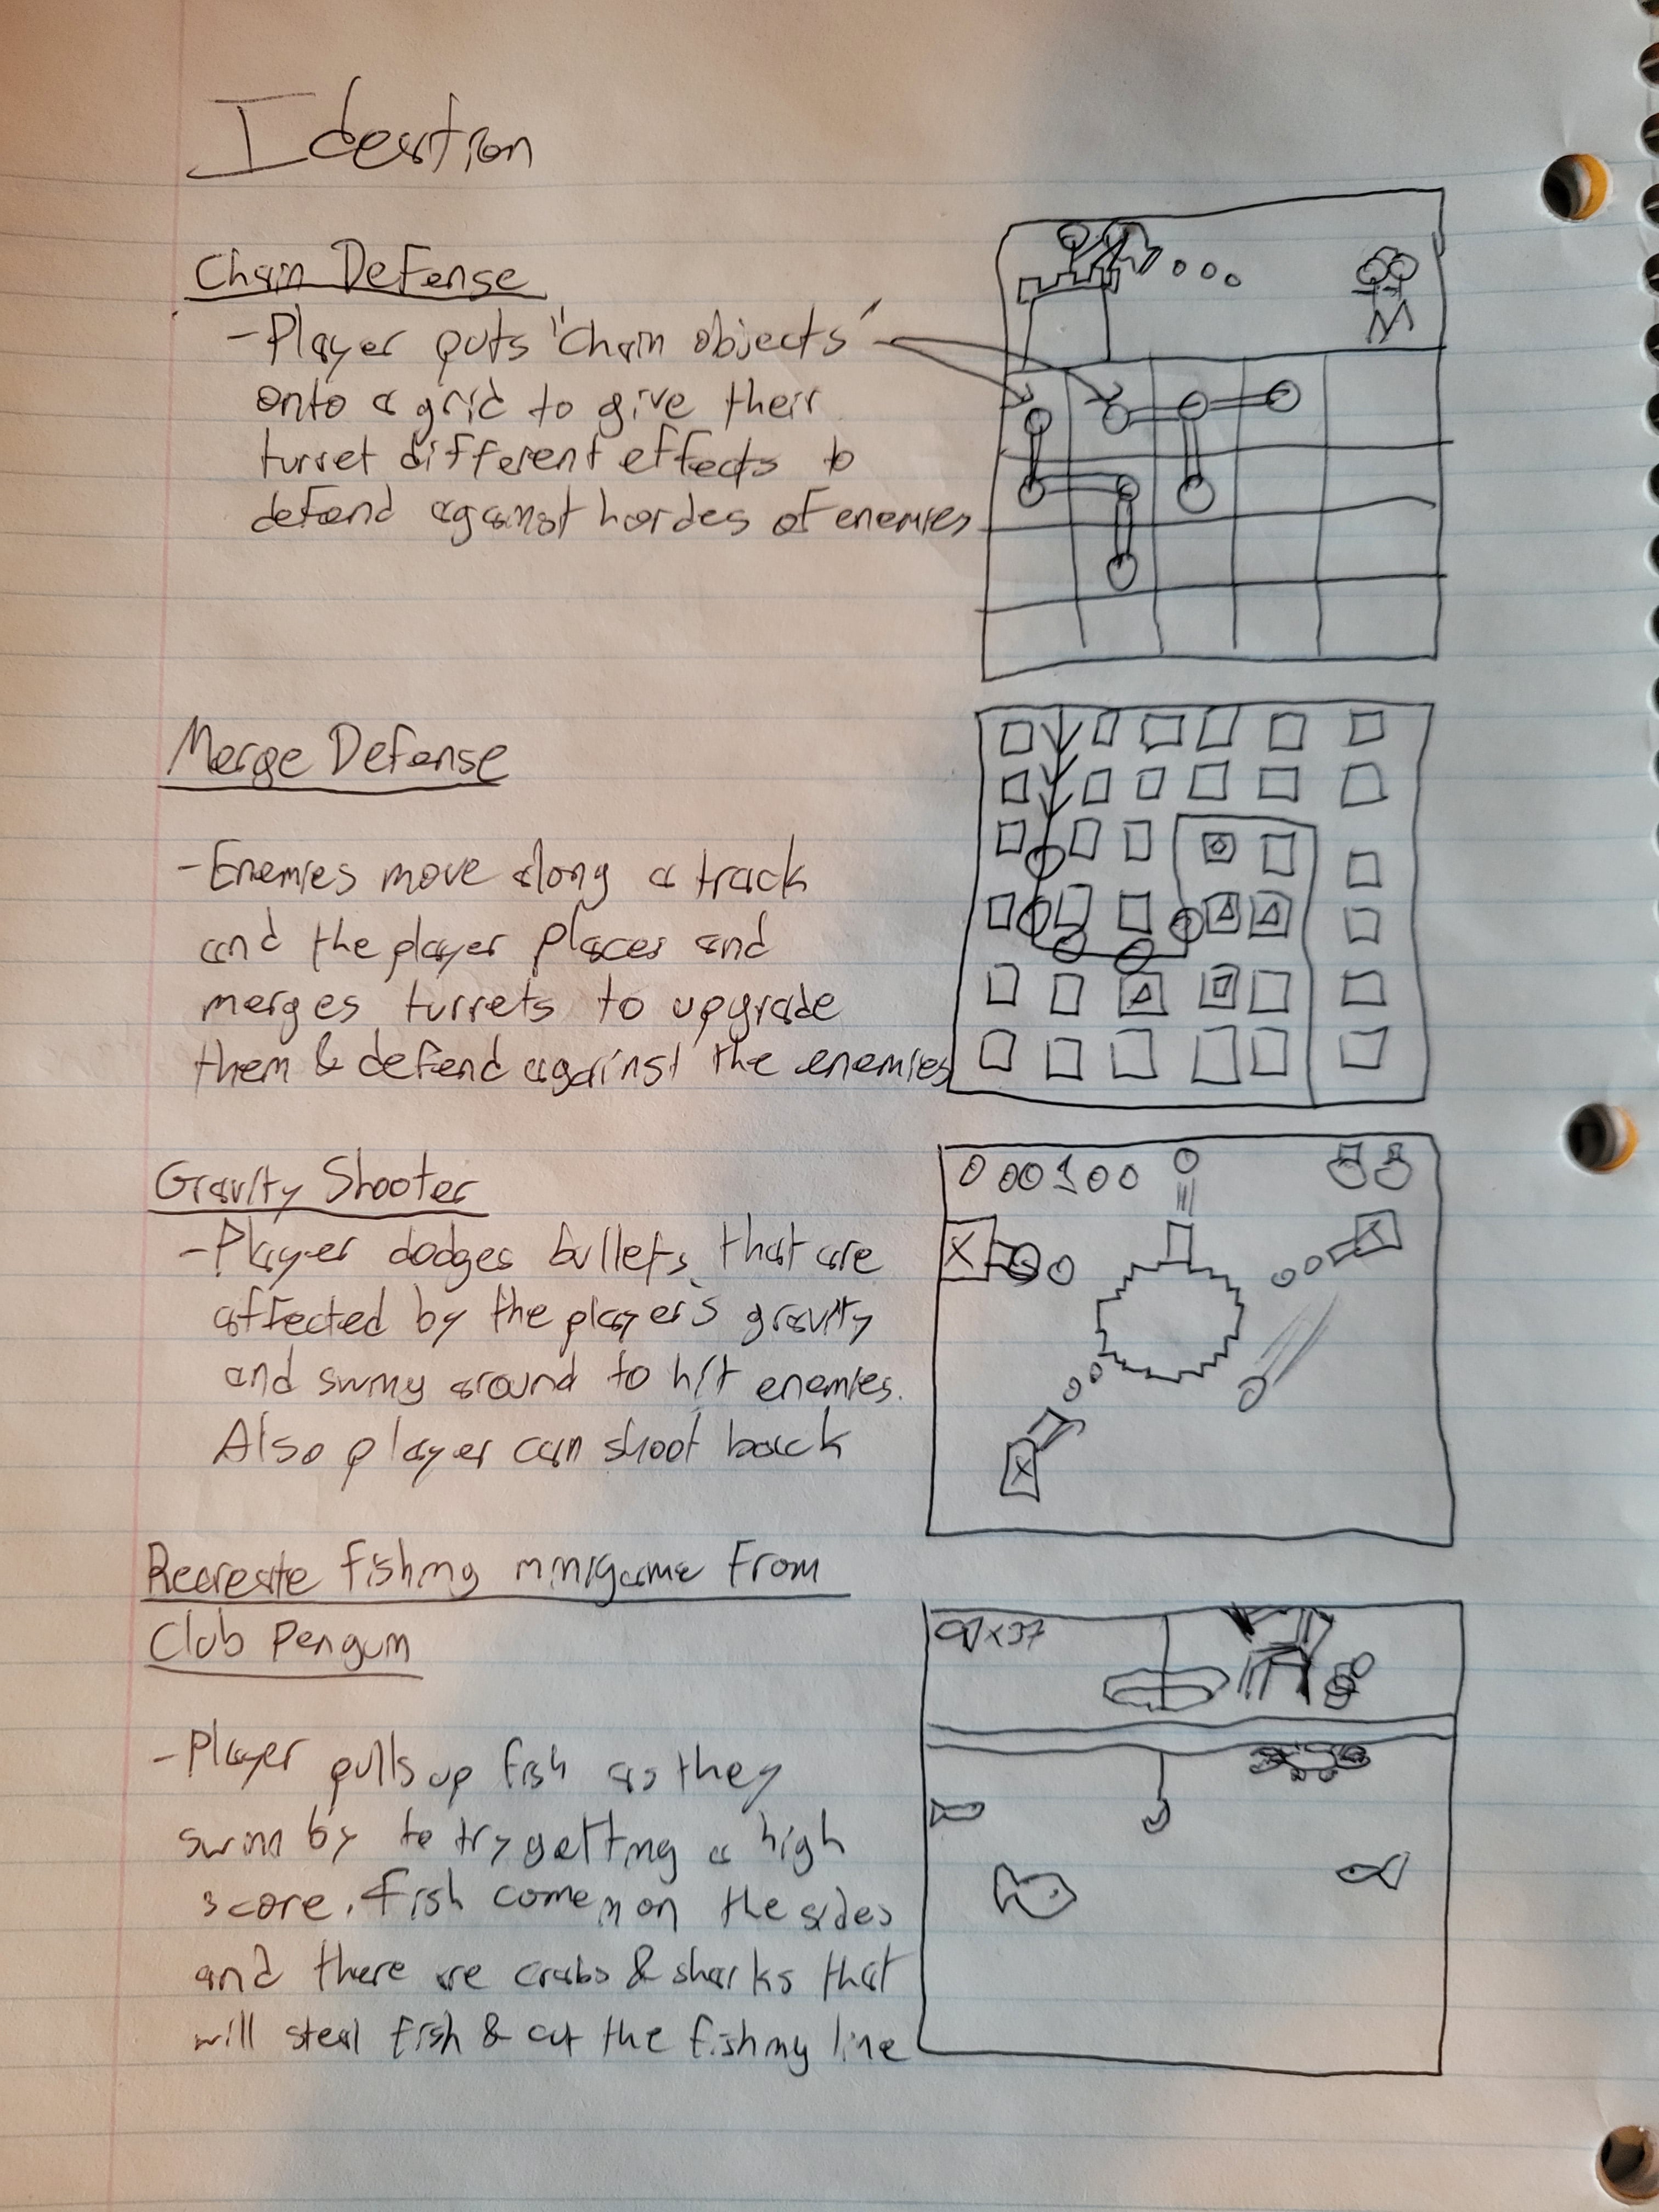 Ideation
Chain Defense
-Player puts "chain objects"
onto a grid to give their
turret different effects to
defend against hordes of enemies
Merge Defense
-Enemies move along a track
and the player places and
merges turrets to upgrade
them & defend against the enemies
Gravity Shooter
-Player dodges bullets that are
affected by the player's gravity
and swing around to hit enemies.
Also player can shoot back
000100
X
X
X
Recreate fishing minigame from
Club Penguin
-Player pulls up fish as they
swim by to try getting a high
score. Fish come in on the sides
and there are crabs & sharks that
will steal fish & cut the fishing line
x37